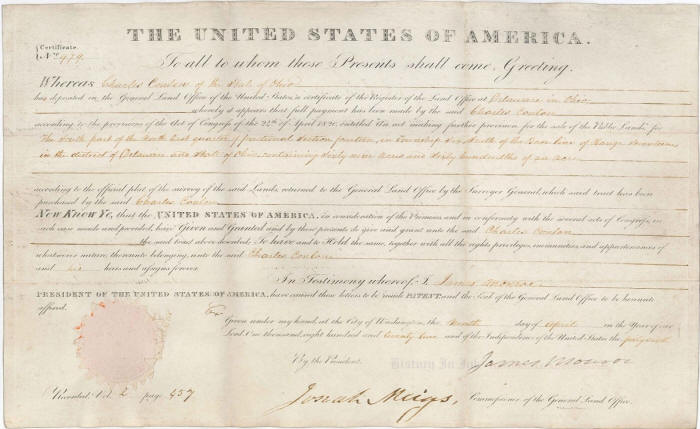 THE UNITED STATES OF AMERICA.
Certificate
No. 479
To all to whom these Presents shall come, Greeting.
Whereas Charles Conlon of the State of Ohio
has deposited in the General Land Office of the United States, a certificate of the Register of the Land Office at Delaware in Ohio
whereby it appears that full payment has been made by the said Charles Conlon
according to the provisions of the Act of Congress of the 24th of April 1820, entitled "An act making further provision for the sale of the Public Lands," for
The South part of the North East quarter of fractional Section fourteen, in Township Six South of the Base line of Range
in the district of Delaware and State of Ohio, containing Sixty nine acres and Sixty hundredths of an acre
according to the official plat of the survey of the said Lands, returned to the General Land Office by the Surveyor General, which said tract has been
purchased by the said Charles Conlon
Now Know Ye, that the UNITED STATES OF AMERICA, in consideration of the Premises, and in conformity with the several acts of Congress, in
such case made and provided, have Given and Granted and by these presents do give and grant unto the said Charles Conlon
the said tract above described: To have and to Hold the same, together with all the rights, privileges, immunities, and appurtenances of
whatsoever nature, thereunto belonging, unto the said Charles Conlon
and his heirs and assigns forever.
In Testimony whereof, I, James Monroe
PRESIDENT OF THE UNITED STATES OF AMERICA, have caused these letters to be made PATENT, and the Seal of the General Land Office to be hereunto
affixed.
Given under my hand, at the City of Washington, the day of April in the Year of our
Lord One thousand, eight hundred and twenty one and of the Independence of the United States the forty fifth
By the President.
James Monroe
History In
Josiah Meigs, Commissioner of the General Land Office.
Recorded, Vol. 2 page 457